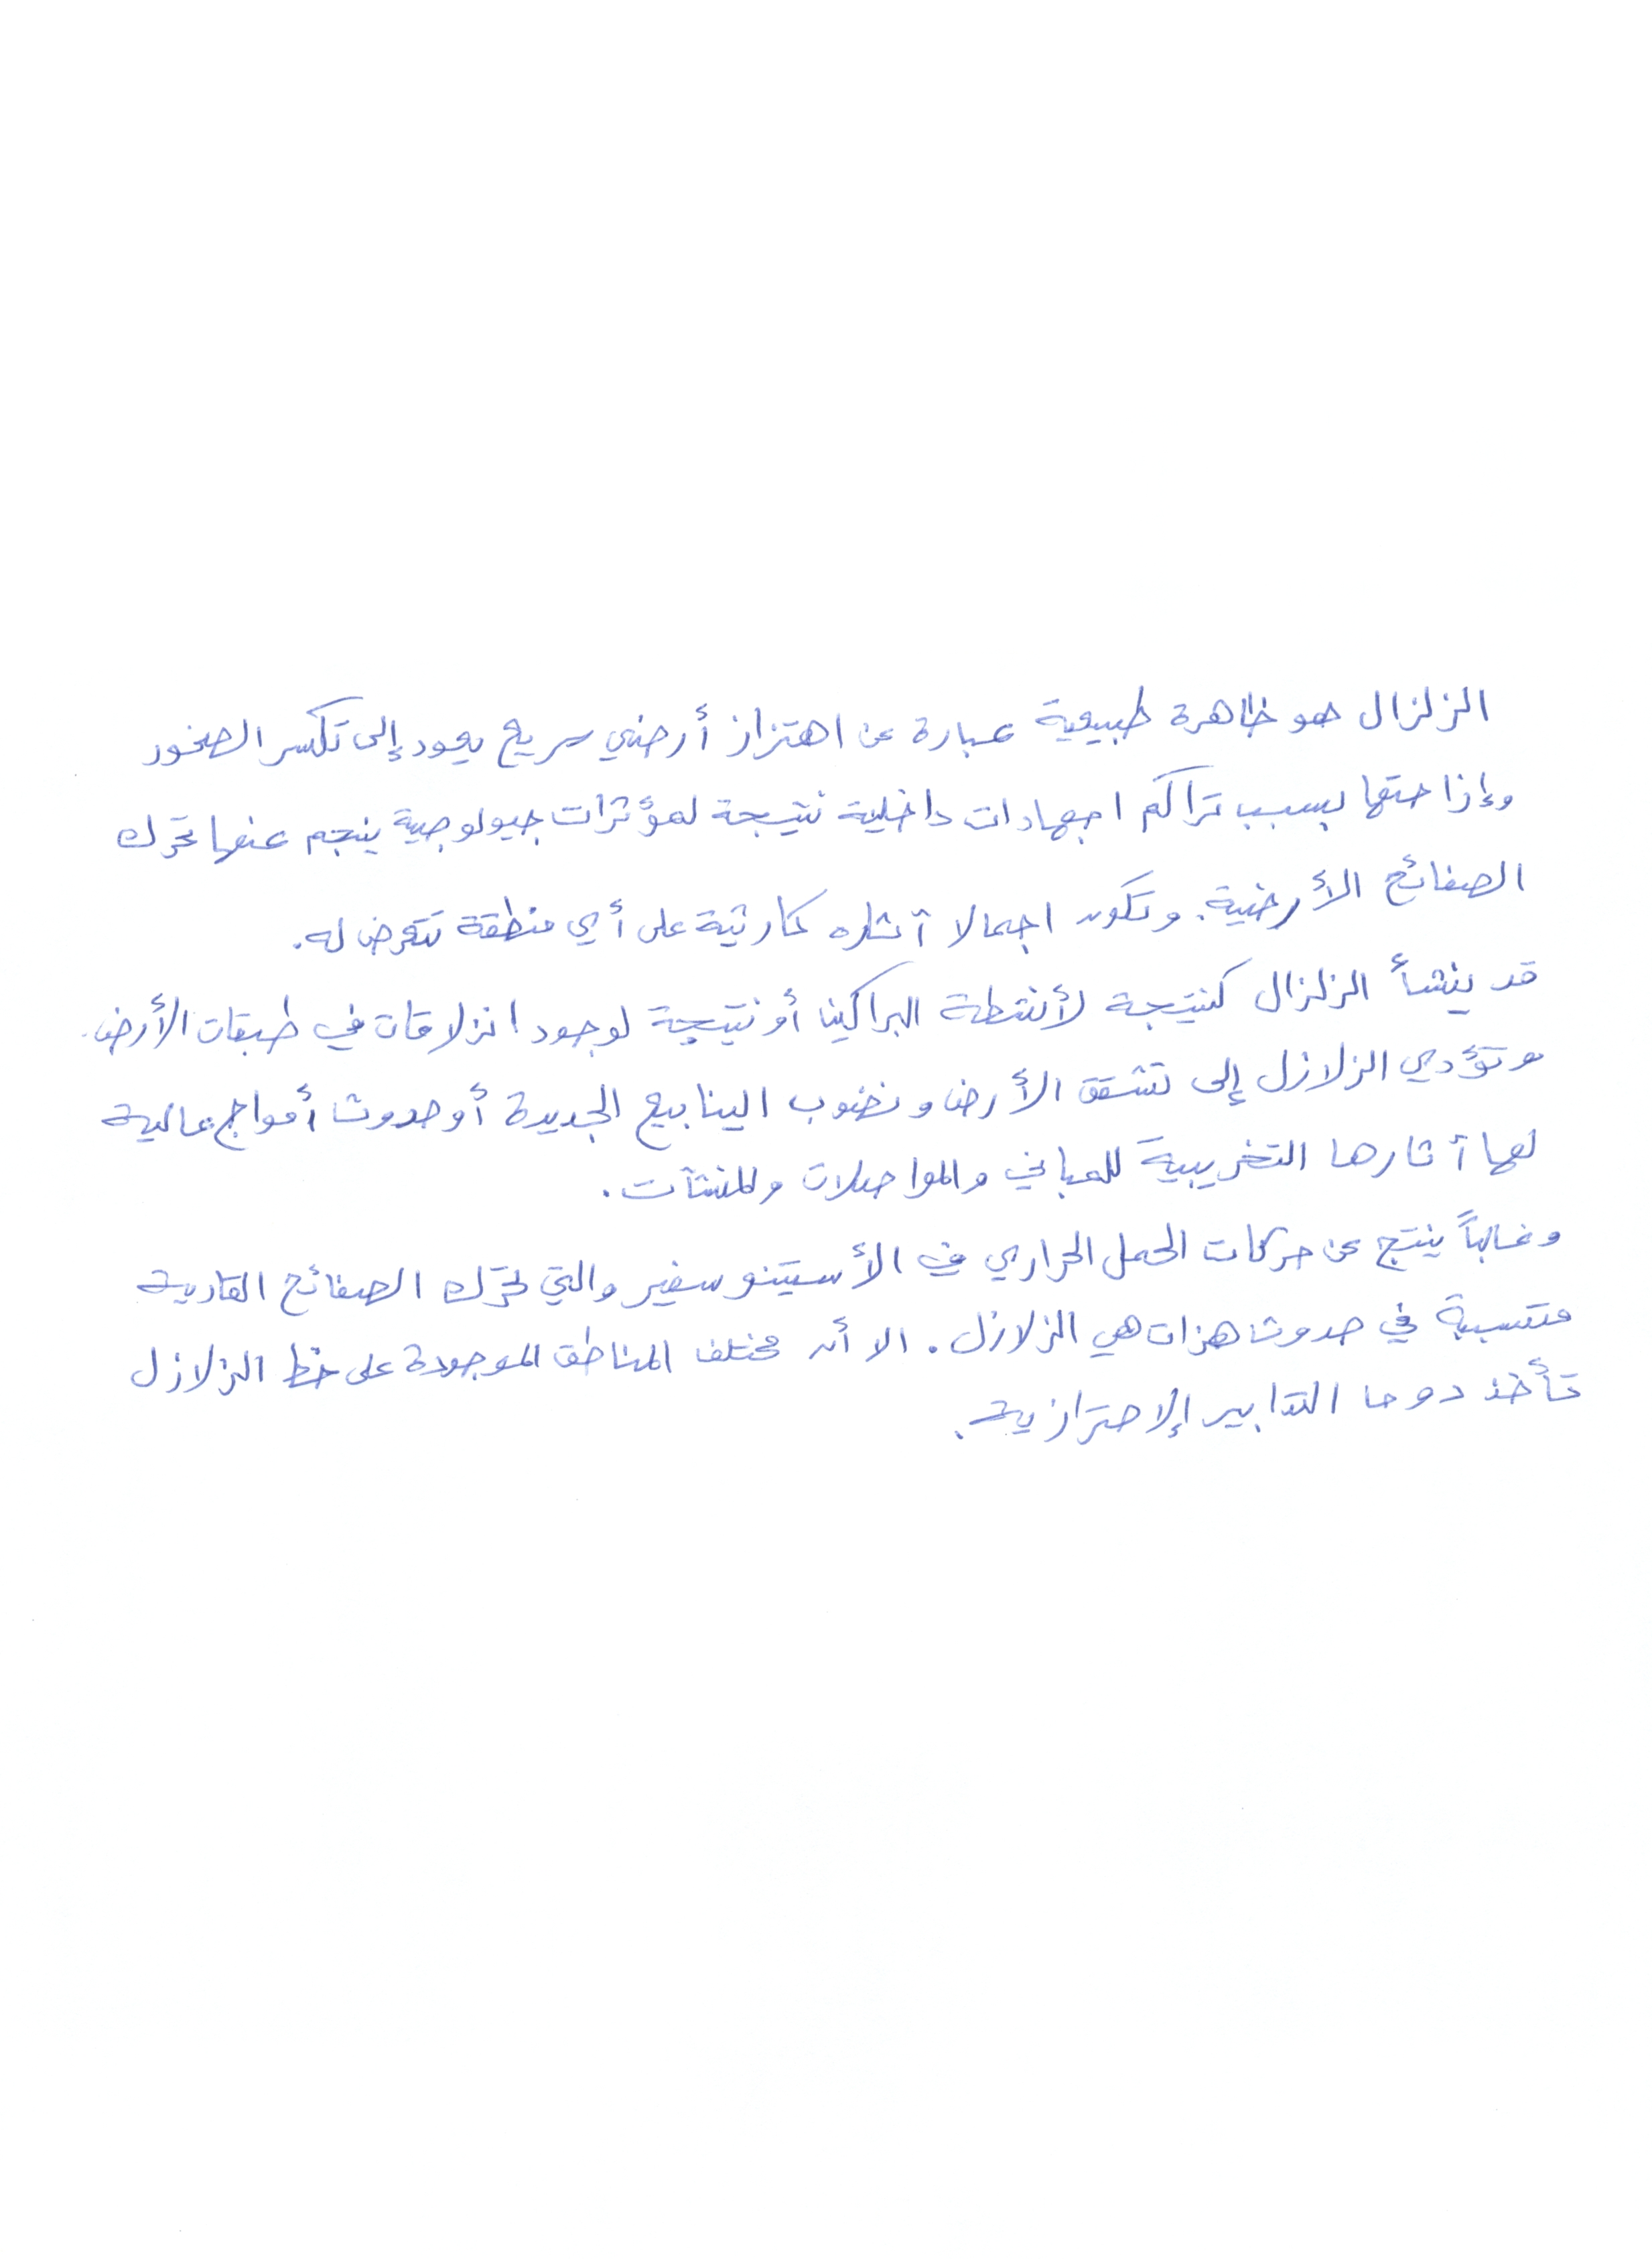 الزلزال هو ظاهرة طبيعية عبارة عن اهتزاز أرضي سريع يعود إلى تكسر الصخور
وإزاحتها بسبب تراكم اجهادات داخلية نتيجة لمؤثرات جيولوجية ينجم عنها تحرك
الصفائح الأرضية. وتكون اجمالا آثاره كارثية على أي منطقة تتعرض له.
قد ينشأ الزلزال كنتيجة لأنشطة البراكين أو نتيجة لوجود انزلاقات في طبقات الأرض.
وتؤدي الزلازل إلى تشقق الأرض ونضوب الينابيع الجديدة أو حدوث أمواج عالية
لها آثارها التخريبية للمباني والمواصلات والمنشآت.
وغالباً ينتج عن حركات الحمل الحراري في الأستينوسفير والتي تحرك الصفائح القارية
متسببة في حدوث هزات هي الزلازل. الا أن مختلف المناطق الموجودة على خط الزلازل
تأخذ دوما التدابير الإحترازية.